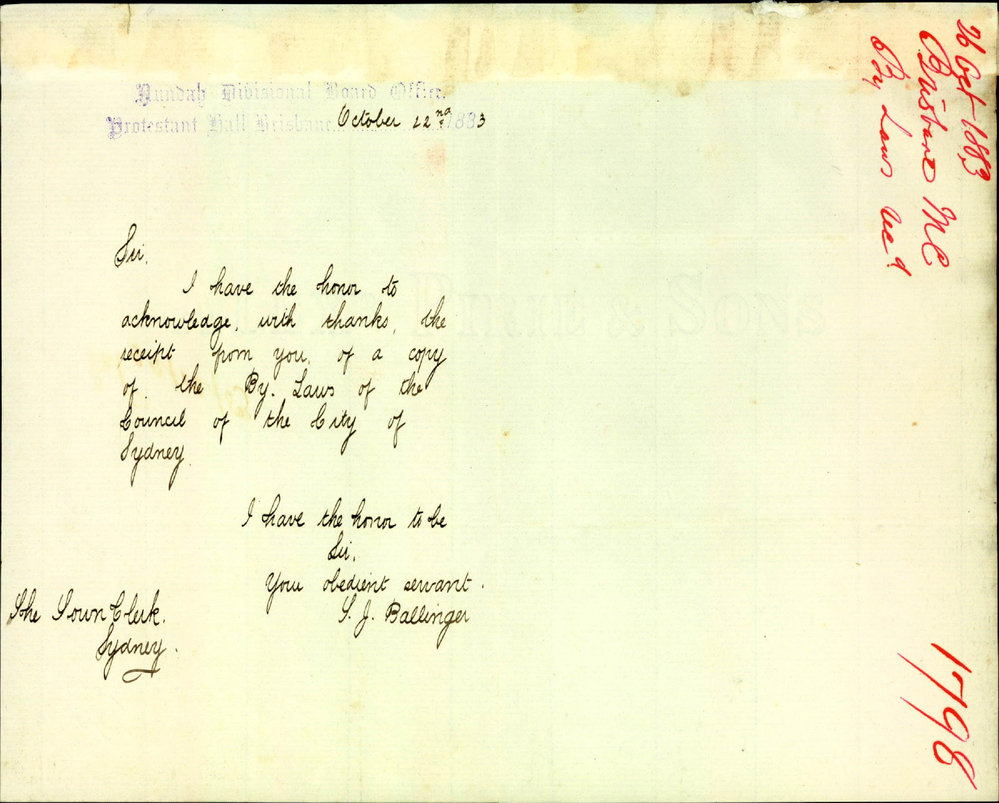 Nundah Divisional Board Office.
Protestant Hall Brisbane October 22nd 1883
Sir,
I have the honor to
acknowledge, with thanks, the
receipt from you, of a copy
of the By. Laws of the
Council of the City of
Sydney
I have the honor to be
Sir,
Your obedient servant.
J. Ballinger
The Town Clerk.
Sydney.
26 Oct 1883
Brisbane MC
By Laws
1798